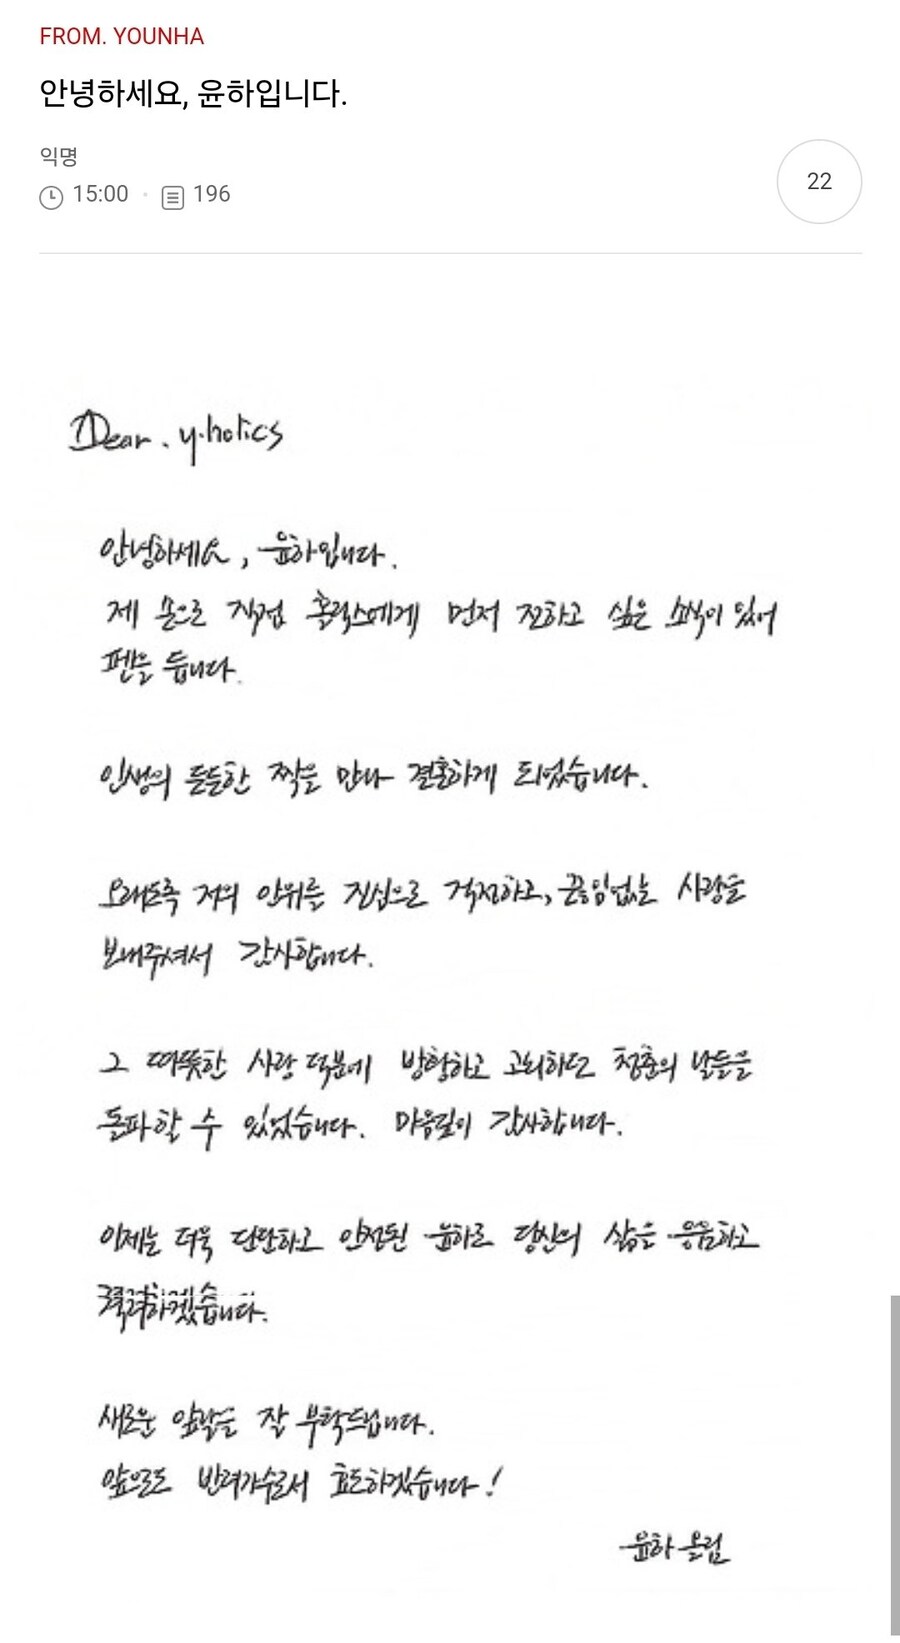 FROM. YOUNHA
안녕하세요, 윤하입니다.
익명
15:00 · 196
22
Dear. y.holics
안녕하세요, 윤하입니다.
제 손으로 직접 홀릭스에게 먼저 전하고 싶은 소식이 있어
펜을 듭니다.
인생의 든든한 짝을 만나 결혼하게 되었습니다.
오래도록 저의 안위를 진심으로 걱정하고, 끊임없는 사랑을
보내주셔서 감사합니다.
그 따뜻한 사랑 덕분에 방황하고 고뇌하던 청춘의 날들을
돌파할 수 있었습니다. 마음깊이 감사합니다.
이제는 더욱 단단하고 안전된 윤하로 당신의 삶을 응원하고
격려하겠습니다.
새로운 앞날을 잘 부탁드립니다.
앞으로도 반려가수로서 효도하겠습니다!
윤하 올림